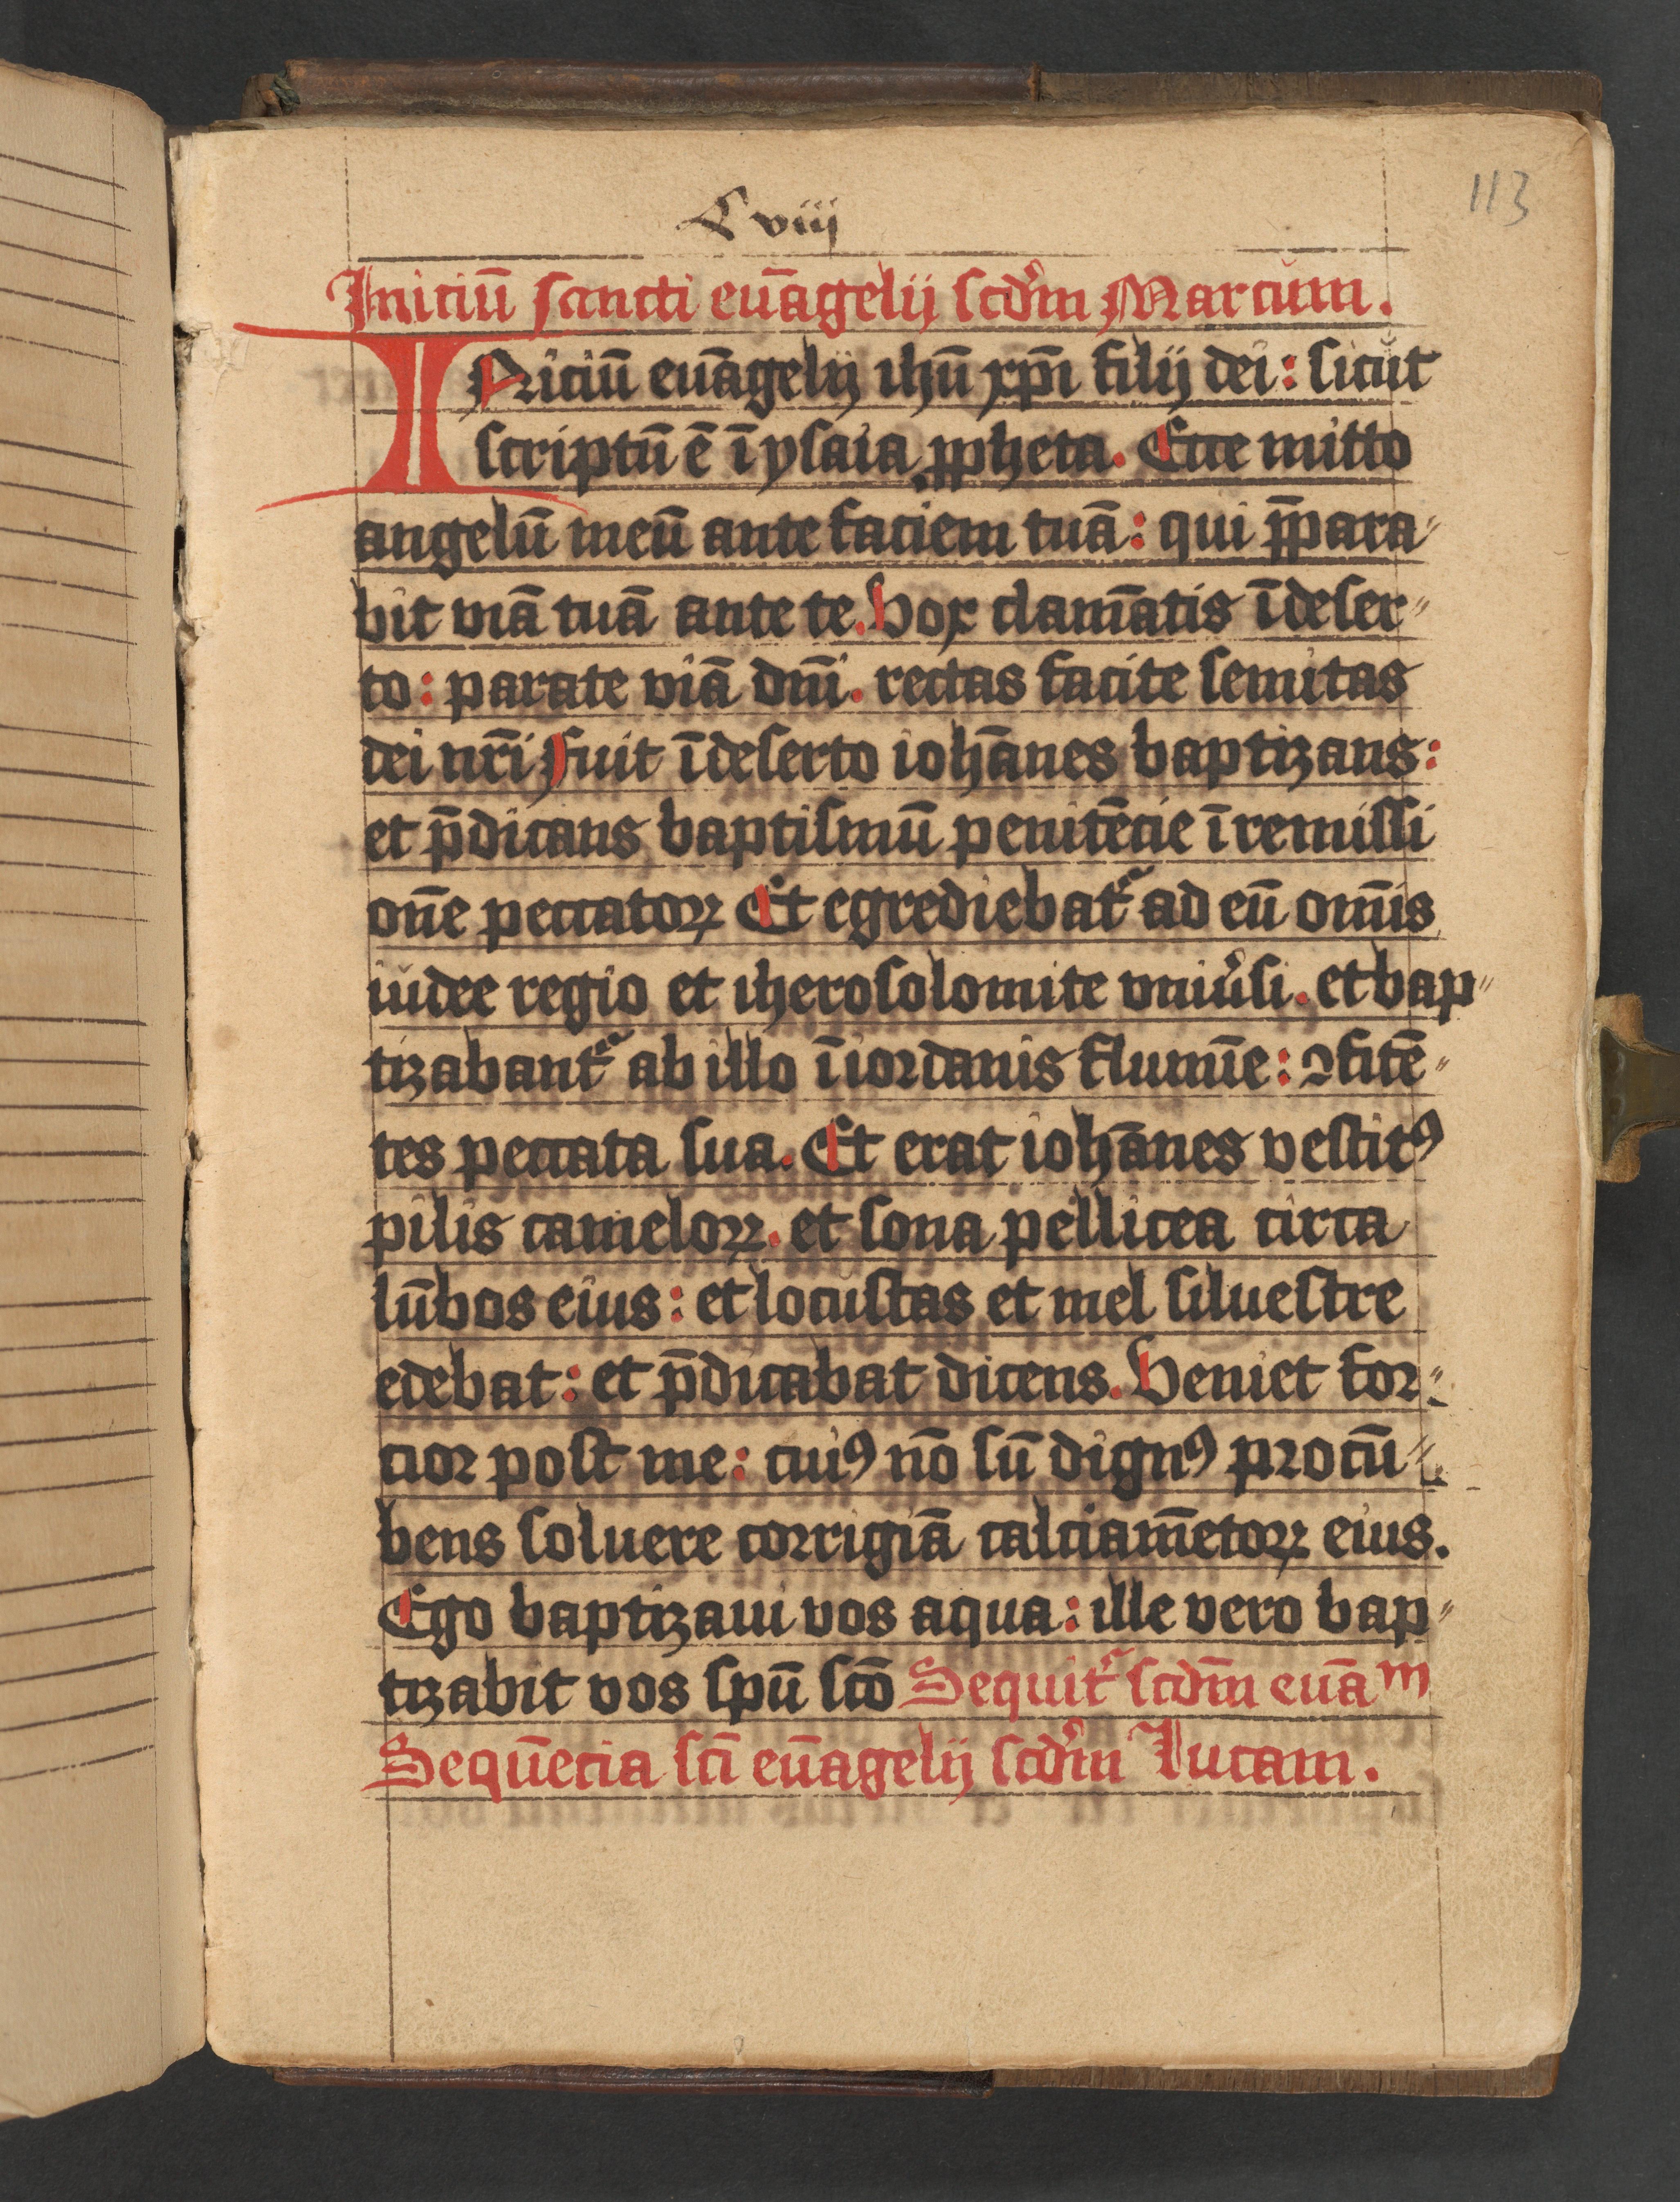 113
Lviij
Iniciū sancti euāgelij scd'm Marcum.
INiciū euāgelij ihū xp̄i filij dei: sicut
scriptū ē ī ysaia ꝓpheta. Ecce mitto
angelū meū ante faciem tuā: qui p̄para⸗
bit viā tuā ante te. Vox clam̄atis ī deser⸗
to: parate viā dn̄i. rectas facite semitas
dei nr̄i Fuit ī deserto ioh̄anes baptizans:
et p̄dicans baptismū penitēcie ī remissi
on̄e peccatoꝝ Et egrediebat᷑ ad eū om̄is
iudee regio et iherosolomite vniu'si. et bap⸗
tizabant᷑ ab illo ī iordanis flumīe: ꝯfitē⸗
tes peccata sua. Et erat ioh̄anes vestitꝰ
pilis cameloꝝ. et sona pellicea circa
lūbos eius: et locustas et mel siluestre
edebat: et p̄dicabat dicens. Veniet for⸗
cior post me: cuiꝰ nō sū dignꝰ procū⸗
bens soluere corrigiā calciam̄etoꝝ eius.
Ego baptizaui vos aqua: ille vero bap⸗
tizabit vos spū scō Sequit᷑ scdm̄ euāᵐ
Seqūecia scī eūagelij scd'm Lucam.